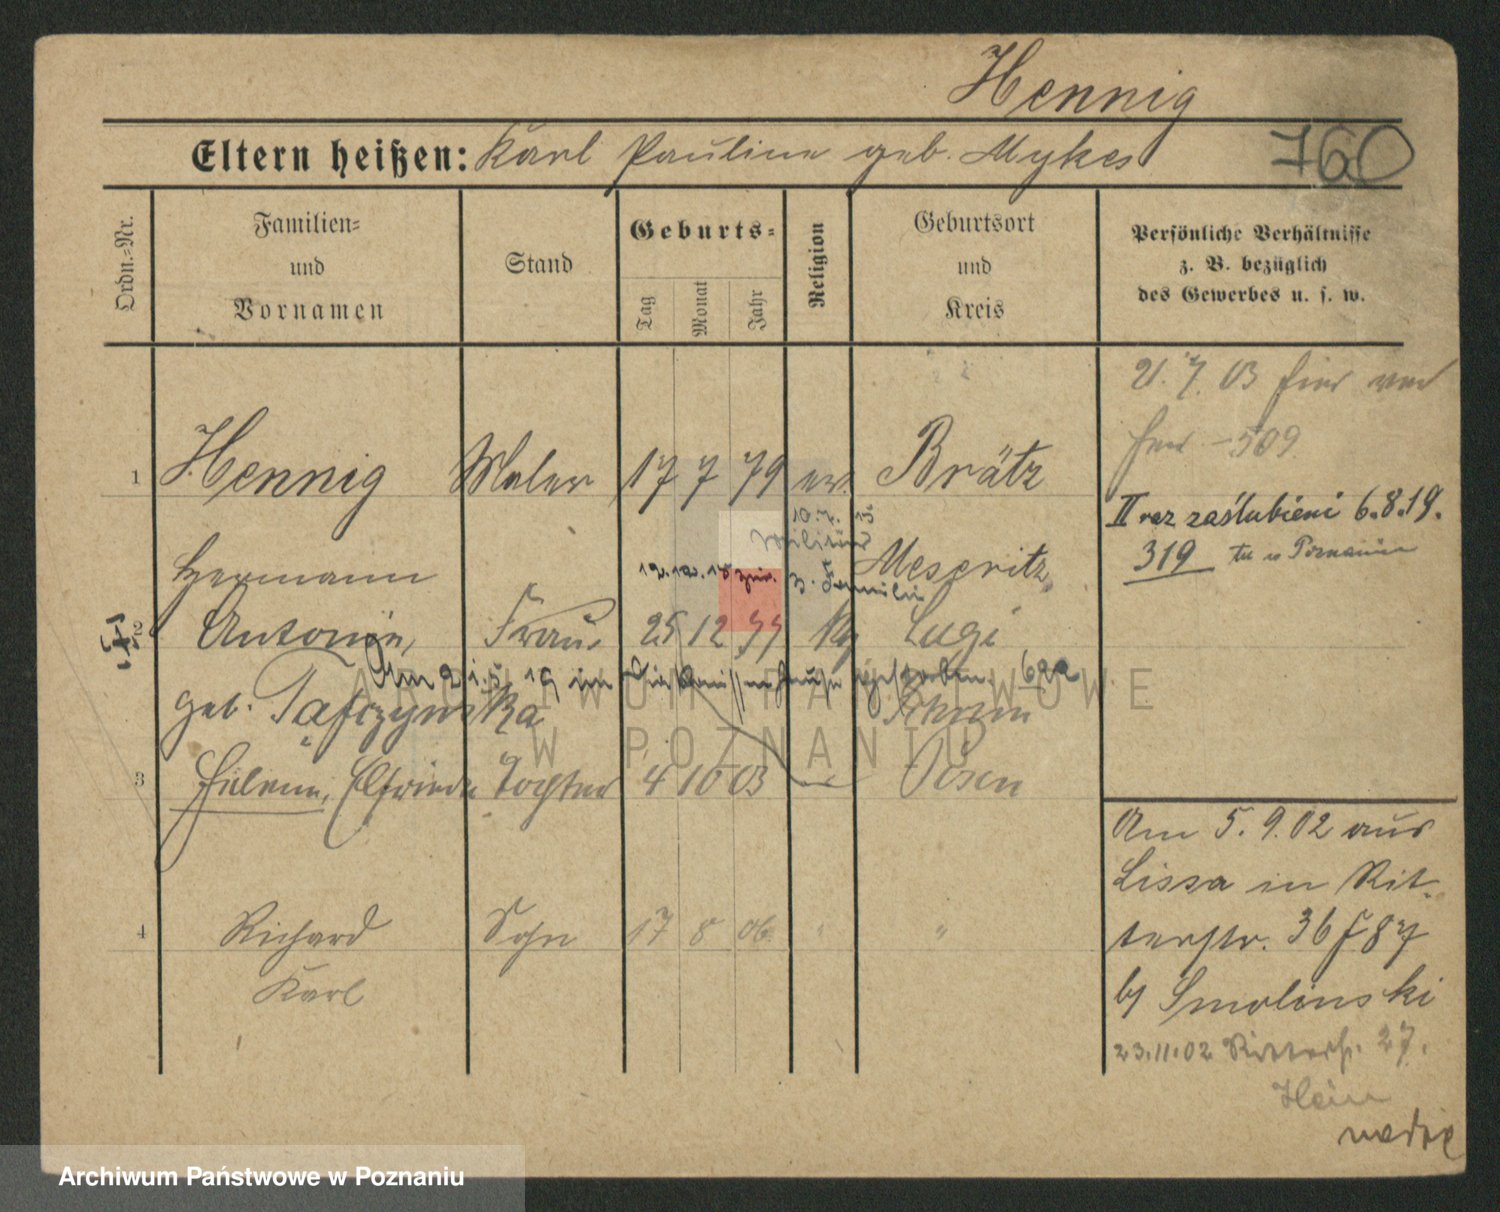 Hennig
760
Eltern heißen: Karl Pauline geb. Mykes
Ordn.-Nr.
Familien-
und
Vornamen
Stand
Geburts-
Tag
Monat
Jahr
Religion
Geburtsort
und
Kreis
Persönliche Verhältnisse
z. B. bezüglich
des Gewerbes u. s. w.
21. 7. 03
509
1 Hennig Maler 17 7 79 ev. Brätz
II raz zaślubieni 6.8.19.
319 tu w Poznaniu
10. 7. 13.
Militär
Hermann Meseritz
2 Antonie, Frau 25 12 77 Lugi
Am 21.5.19 im gestorben. 622
geb. Schrimm
3 Helene, Elfriede Tochter 4 10 03 Posen
Am 5. 9. 02 aus
Lissa in Rit-
terstr. 36 f 87
by Smolinski
4 Richard Sohn 17 8 06 " "
Karl
23.11.02 Ritterstr. 27.
Hein
ARCHIWUM PAŃSTWOWE
W POZNANIU
Archiwum Państwowe w Poznaniu